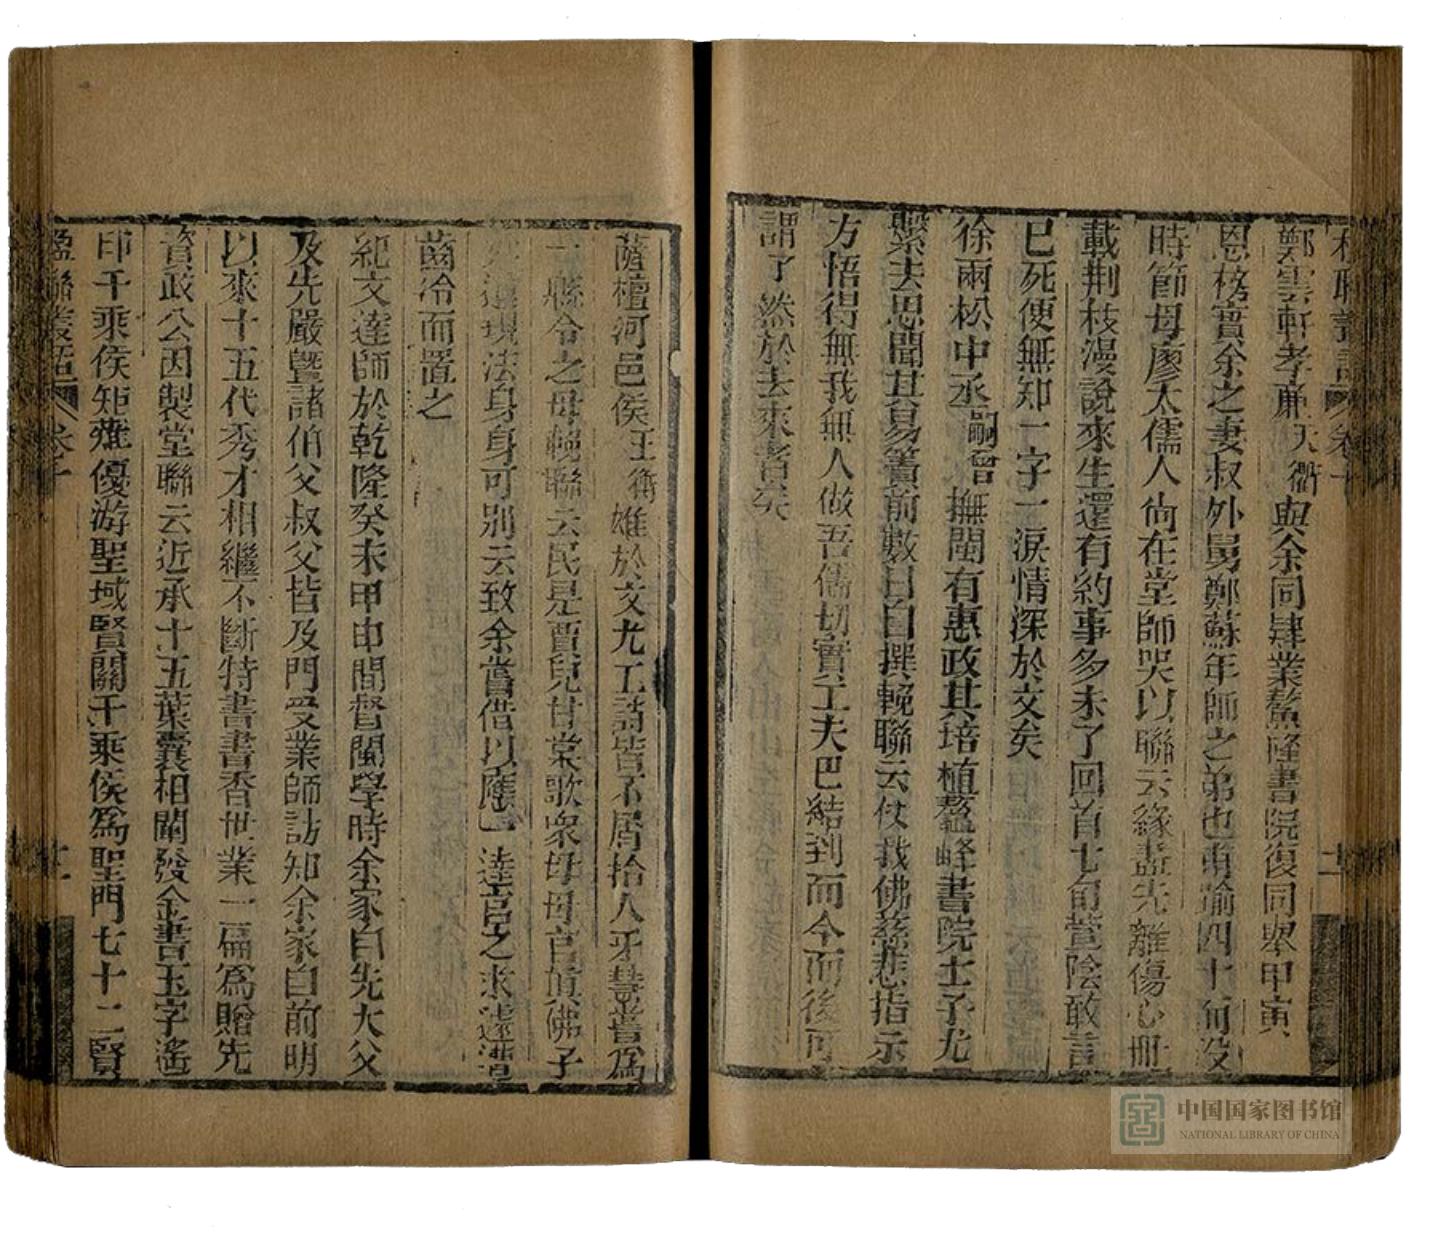 鄭雲軒孝廉天衢與余同肄業鰲峰書院復同舉甲寅
恩榜實余之妻叔外舅鄭蘇年師之弟也甫踰四十而没
時節母廖太儒人尙在堂師哭以聯云緣盡先離傷心世
載荆枝漫說來生還有約事多未了回首七旬萱陰敢言
已死便無知一字一淚情深於文矣
徐兩松中丞嗣曾撫閩有惠政其培植鼇峰書院士子尤
繫去思聞其易簀前數日自撰輓聯云仗我佛慈悲指示
方悟得無我無人做吾儒切實工夫巴結到而今而後可
謂了然於去來者矣
薩檀河邑侯王衛雄於文尤工詩皆不屑拾人牙慧嘗爲
一縣令之母輓聯云民是賈兒甘棠歌衆母母官真佛子
道現法身身可别云致余嘗借以應達官之求遽遭
齒冷而置之
紀文達師於乾隆癸未甲申間督閩學時余家自先大父
及先嚴曁諸伯父叔父皆及門受業師訪知余家自前明
以來十五代秀才相繼不斷特書書香世業一匾爲贈先
資政公因製堂聯云近承十五葉囊相闡發金書玉字遙
印千乘侯矩薙優游聖域賢關千乘侯爲聖門七十二賢
楹聯叢話 卷十